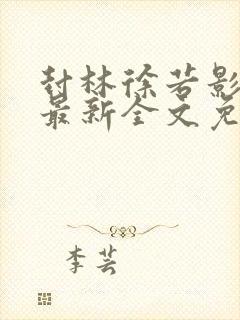 封林徐若影
最新全文免
李芸